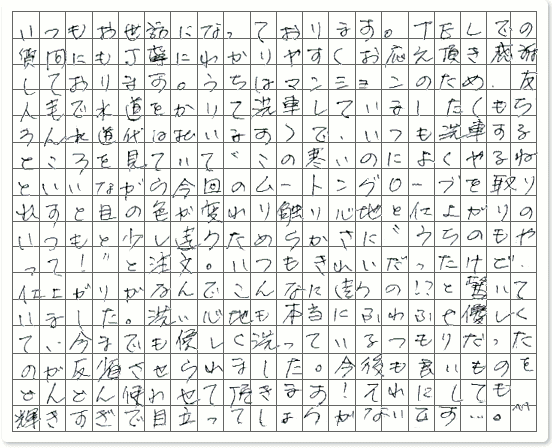 いつもお世話になっております。TELでの
質問にも丁寧にわかりやすくお応え頂き感謝
しております。うちはマンションのため、友
人宅で水道をかりて洗車していました(もち
ろん水道代は払います)で、いつも洗車する
ところを見ていて〝この寒いのによくやるね
といいながら今回のムートングローブを取り
れすと目の色が変わり触り心地と仕上がりの
いつもと少し違うためらかさに〝うちのもや
って!〟と注文。いつもきれいだったけど、
仕上がりがなんでこんなに違うの!?と驚いて
いました。洗い心地も本当にふわふや優しく
て、今までも優しく洗っているつもりだった
のが反省させられました。今後も良いものを
どんどん使わせて頂きます!それにしても
輝きすぎで目立ってしょうがないです…。